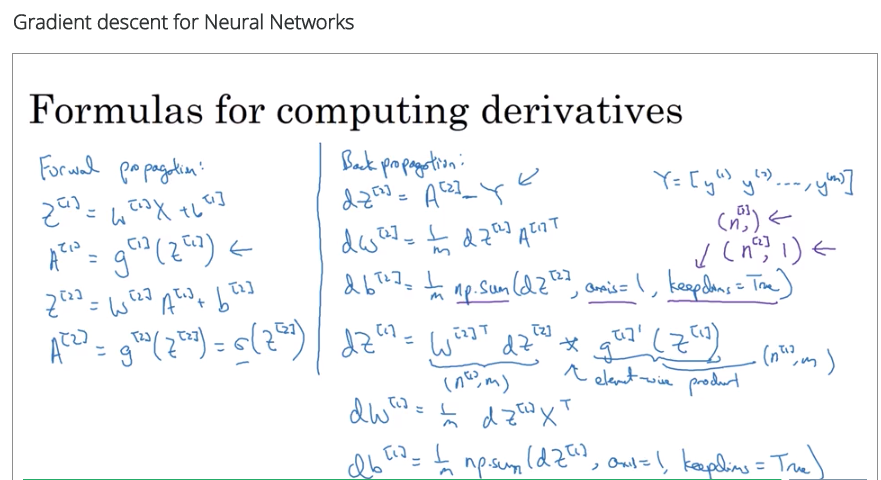 Gradient descent for Neural Networks
Formulas for computing derivatives
Forwal propagation:
Z^[1] = W^[1]X + b^[1]
A^[1] = g^[1](Z^[1]) ←
Z^[2] = W^[2]A^[1] + b^[2]
A^[2] = g^[2](Z^[2]) = σ(Z^[2])
Back propagation:
dZ^[2] = A^[2] - Y ↙
Y = [y^(1) y^(2) ..., y^(m)]
dW^[2] = 1/m dZ^[2] A^[1]T
(n^[2],) ←
↙ (n^[2], 1) ←
db^[2] = 1/m np.sum(dZ^[2], axis=1, keepdims=True)
dZ^[1] = W^[2]T dZ^[2] * g^[1]'(Z^[1])
(n^[1], m) ↖ element-wise product (n^[1], m)
dW^[1] = 1/m dZ^[1] X^T
db^[1] = 1/m np.sum(dZ^[1], axis=1, keepdims=True)